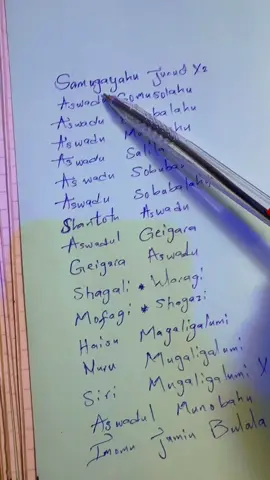 Samugayahu Junud X2
Aswadu Gomusolahu
Aswadu
Aswadu
Aswadu
Aswadu
Aswadu Sobabalahu
Shantotu Aswadu
Aswadul Geigara
Geigara Aswadu
Shagali * Waragi
Mofagi * Shagazi
Haisu Magaligalumi
Nuru Mugaligalumi
Siri Mugaligalumi
Aswadul Munobahu
Imomu Jamin Bulala